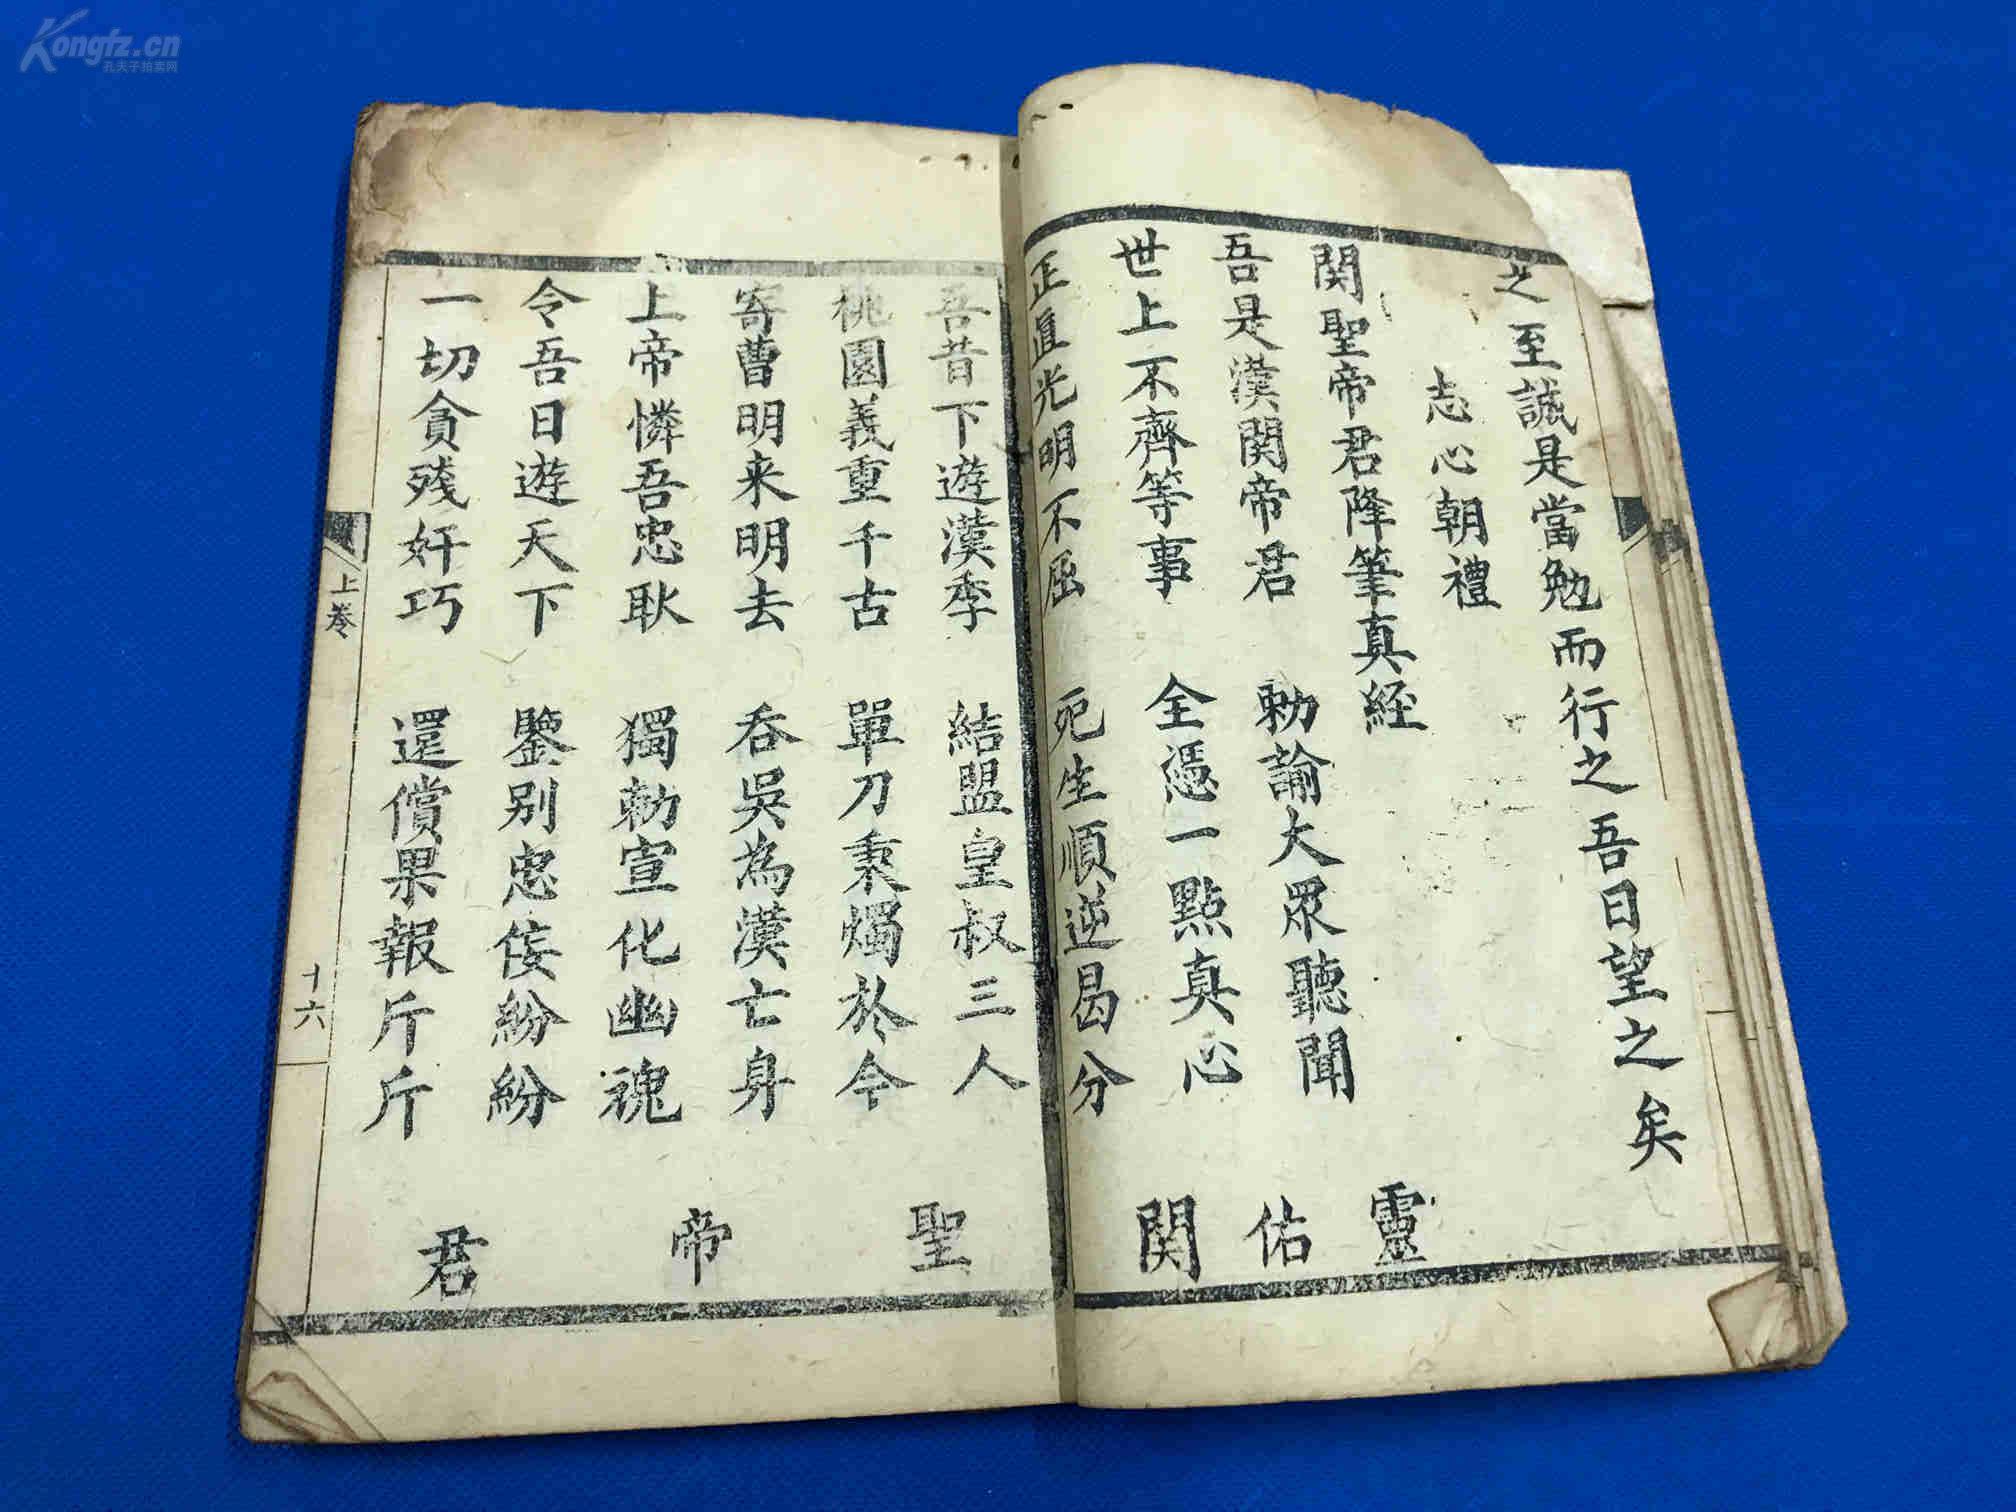 Kongfz.cn
孔夫子拍卖网
之至誠是當勉而行之吾日望之矣
志心朝禮
関聖帝君降筆真経
吾是漢関帝君 勅諭大眾聽聞 靈
世上不齊等事 全憑一點真心 佑
正直光明不屈 死生順逆曷分 関
吾昔下遊漢季 結盟皇叔三人 聖
桃園義重千古 單刀秉燭於今
寄曹明来明去 吞吳為漢亡身 帝
上帝憐吾忠耿 獨勅宣化幽魂
令吾日遊天下 鑒別忠佞紛紛
一切貪殘奸巧 還償果報斤斤 君
上卷
十六